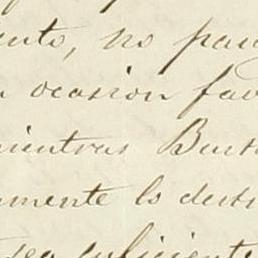 ento, no pau
ocasion fav
mientras Bust
mente lo dest
sea suficiente